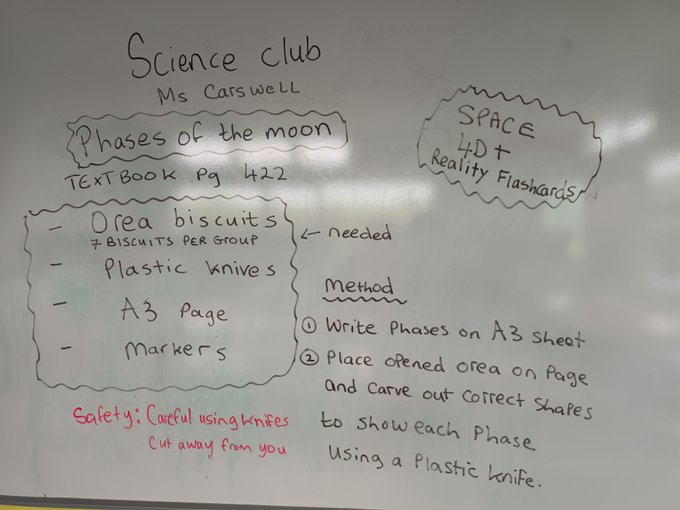 Science club
Ms Carswell
Phases of the moon
TEXTBOOK Pg 422
- Orea biscuits
7 BISCUITS PER GROUP
- Plastic knives
- A3 Page
- Markers
← needed
Safety: Careful using knifes
Cut away from you
SPACE
4D+
Reality Flashcards
Method
① Write Phases on A3 sheet
② Place opened orea on Page
and carve out correct shapes
to show each phase
using a Plastic knife.